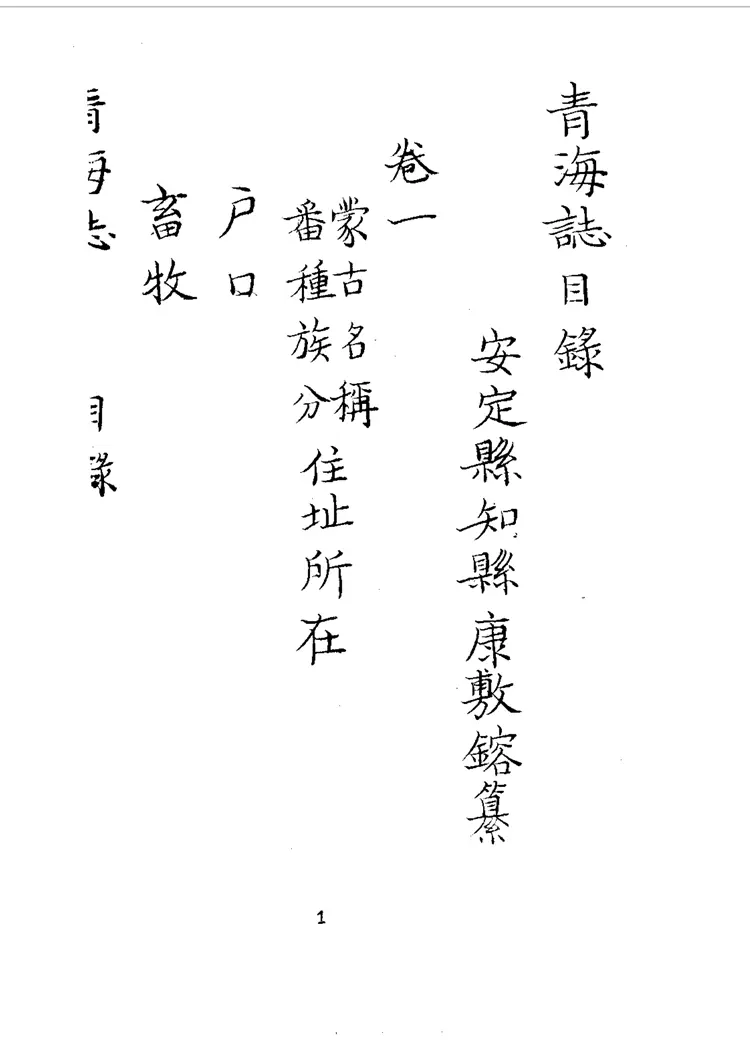 青海誌目錄
安定縣知縣康敷鎔纂
卷一
蒙古名稱
番種族分
住址所在
戶口
畜牧
青海志 目錄
1